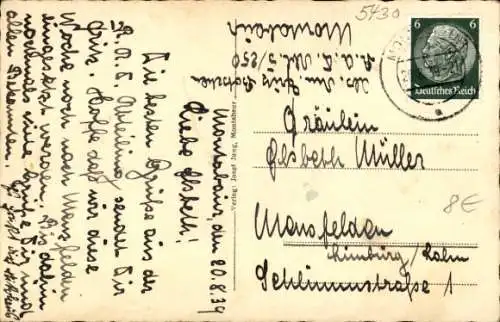 5430
Montabaur
R.A.D. Abt. 5/250
Montabaur, den 20.8.39
Liebe Elsbeth!
Die besten Grüße aus der
R.A.D. Abteilung sendet Dir
Fritz. Hoffe daß wir diese
Woche noch nach Mansfelden
eingesetzt werden. Bis dahin
nochmals viele Grüße Dir und
allen Bekannten.
Verlag: Josef Jung, Montabaur
6 6
Deutsches Reich
Fräulein
Elsbeth Müller
8€
Mansfelden
Limburg/Lahn
Schlimmstraße 1